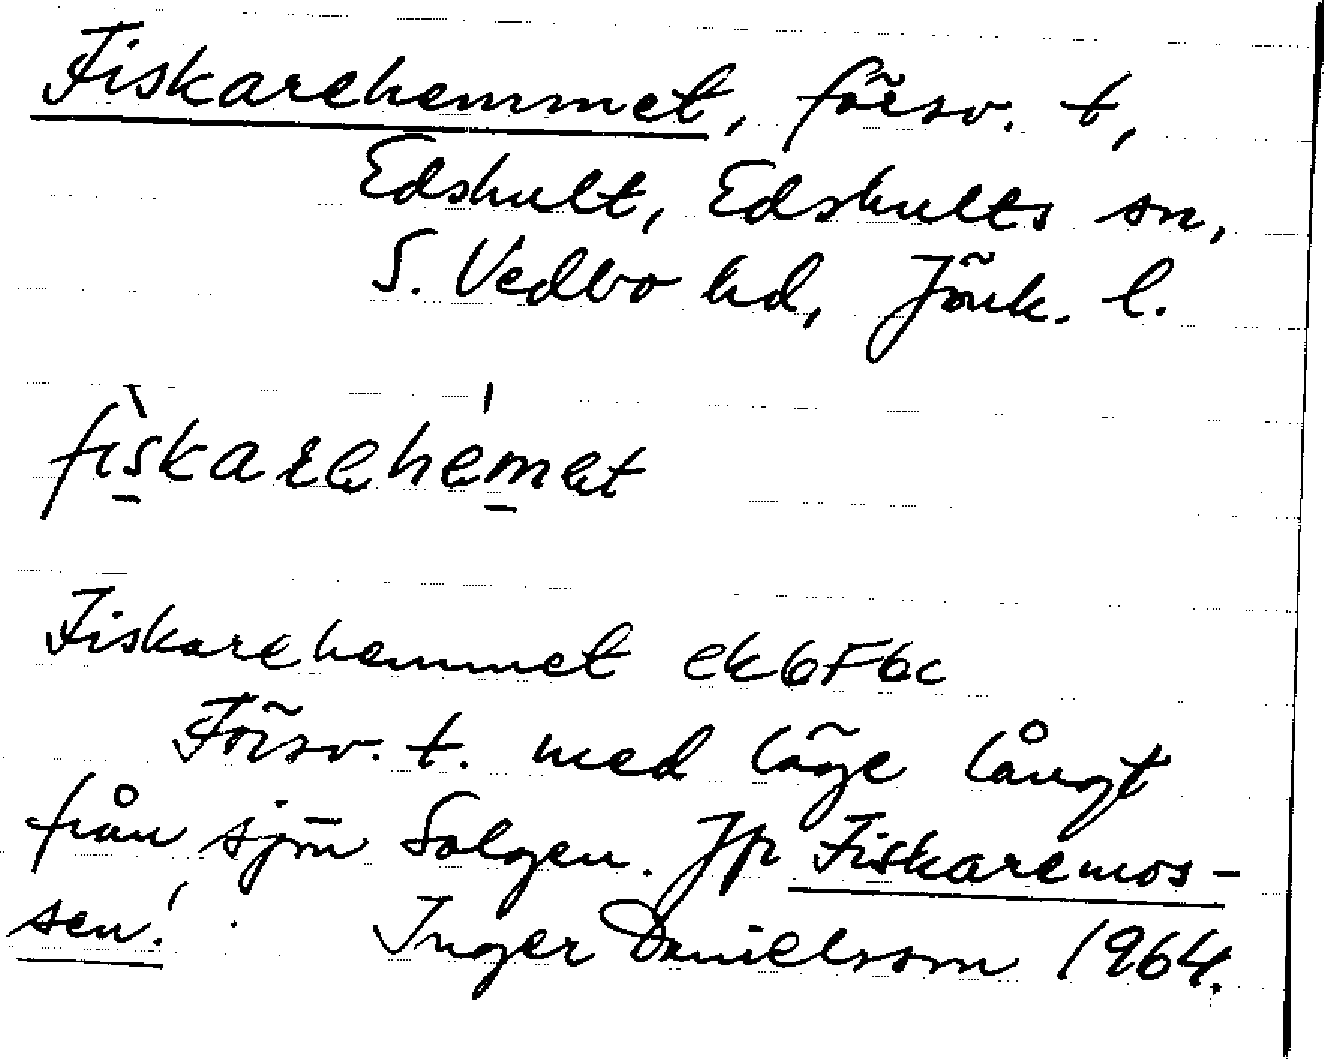 Fiskarehemmet, försv. t,
Edshult, Edshults sn,
S. Vedbo hd, Jönk. l.
fìskarehémet
Fiskarehemmet ek6F6c
Försv. t. med läge långt
från sjön Solgen. Jfr Fiskaremos-
sen!
Inger Danielsson 1964.